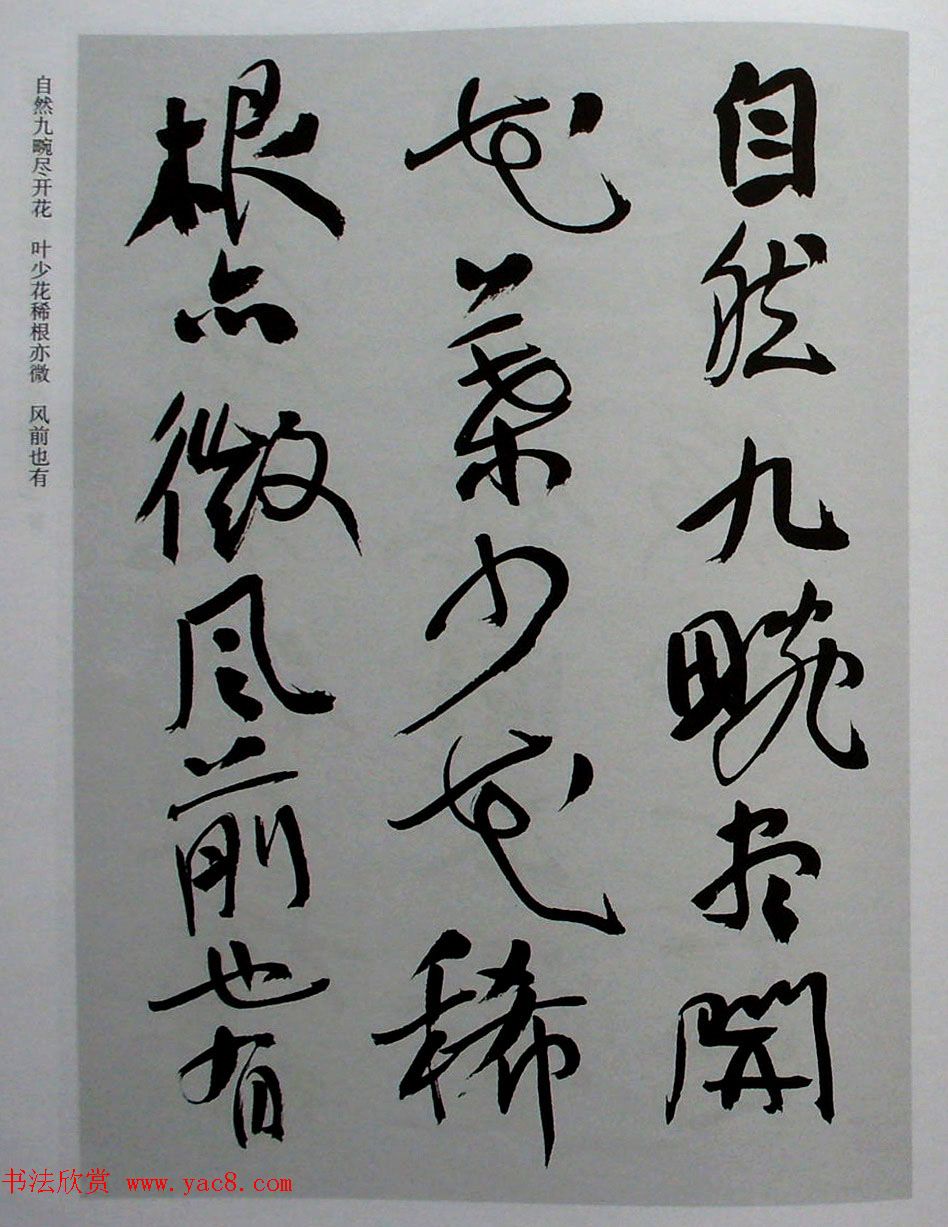 自然九畹尽開
花葉少花稀
根亦微風前也有
自然九畹尽开花　叶少花稀根亦微　风前也有
书法欣赏 www.yac8.com